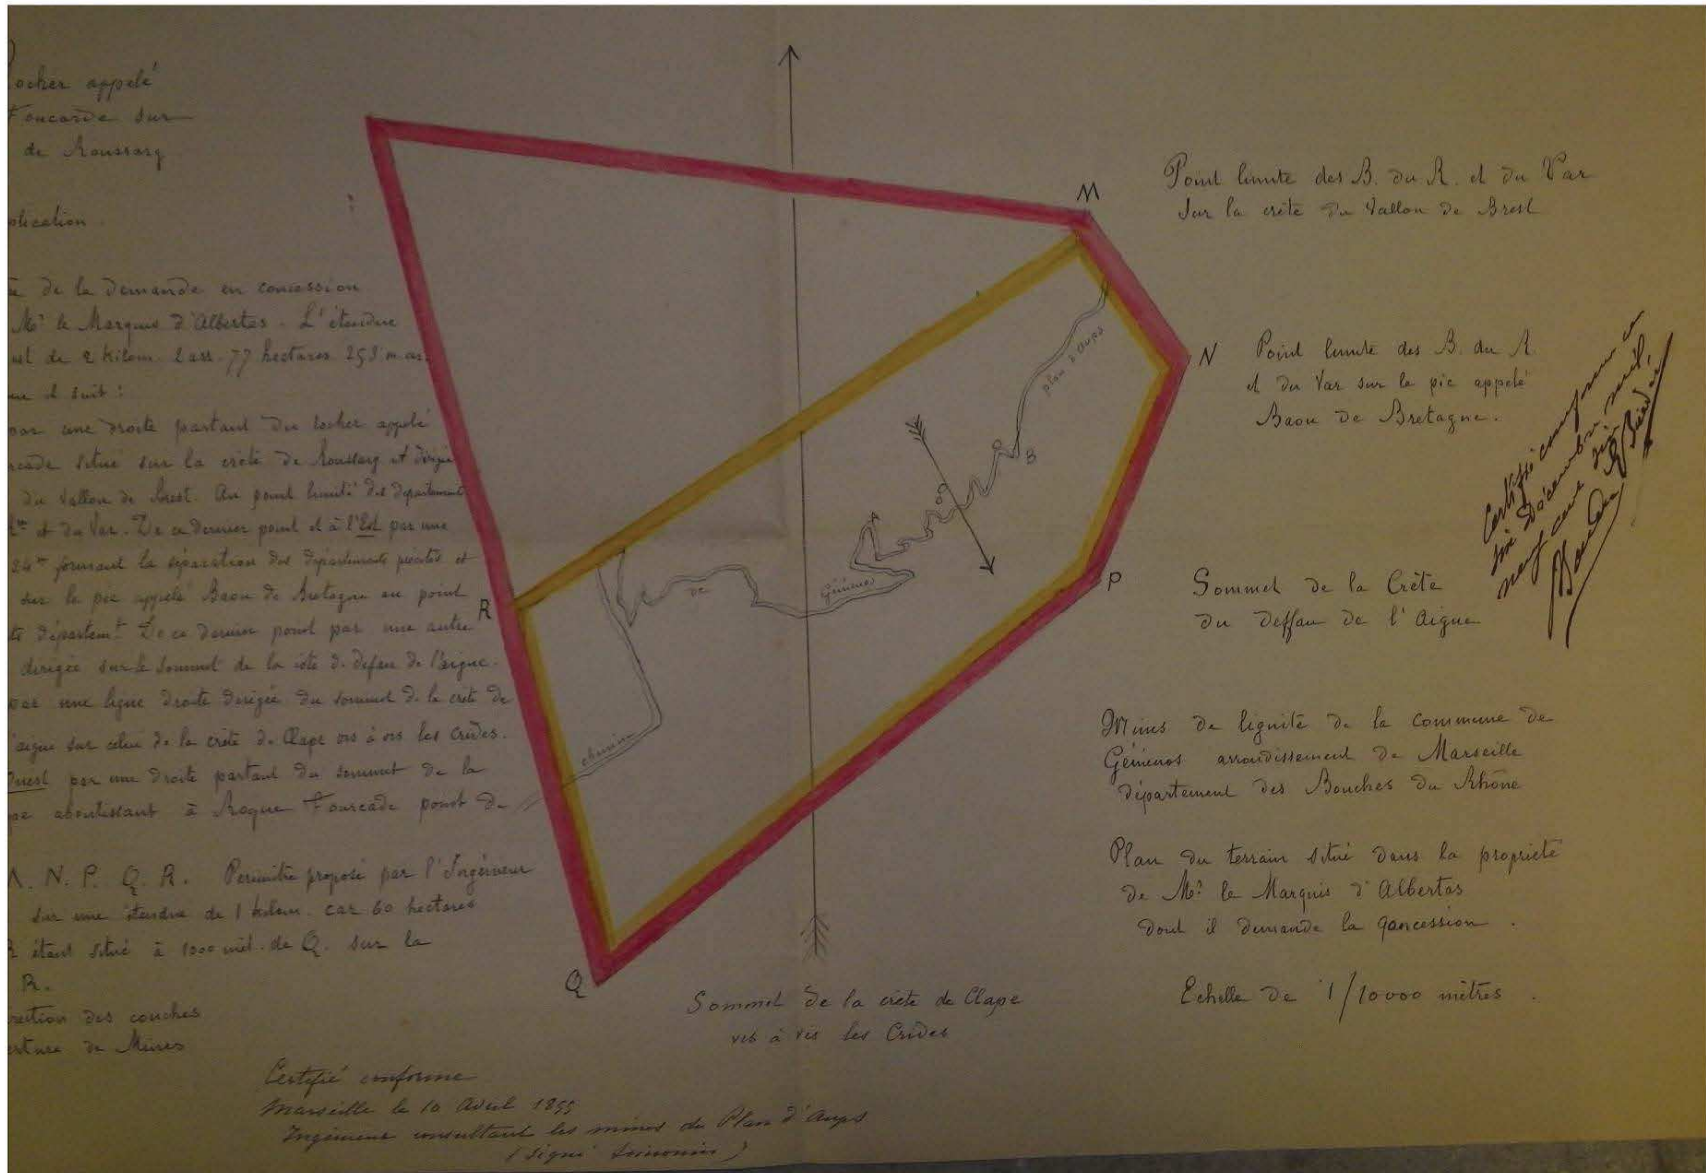 ocher appelé
Foucarde sur
de Roussarg
plication.
de la demande en concession
Mr le Marquis d'Albertas. L'étendue
est de 2 kilom. carr. 77 hectares 293 m. car.
me il suit :
par une droite partant du rocher appelé
rcade situé sur la crête de Roussarg et dirigée
du Vallon de Brest. Au point limite des départements
et du Var. De ce dernier point et à l'Est par une
formant la séparation des départements précités et
sur le pic appelé Baou de Bretagne au point
départemt. De ce dernier point par une autre
dirigée sur le sommet de la crête de defau de l'aigue.
par une ligne droite dirigée du sommet de la crête de
aigue sur celui de la crête de Clape vis à vis les Crides.
Ouest par une droite partant du sommet de la
pe aboutissant à Roque Fourcade point de
M. N. P. Q. R. Périmètre proposé par l'Ingénieur
sur une étendue de 1 kilom. car 60 hectares
R étant situé à 1000 mèt. de Q. sur la
R.
rection des couches
erture de Mines
M
Point limite des B. du R. et du Var
sur la crête du Vallon de Brest
N
Point limite des B. du R.
et du Var sur le pic appelé
Baou de Bretagne.
P
Sommet de la Crête
du Deffau de l'Aigue
R
Q
A
B
chemin
de
Gémenos
og
plan d'Aups
Certifié conforme
décembre mil
neuf cent
Sommet de la crête de Clape
vis à vis les Crides
Mines de lignite de la commune de
Gémenos arrondissement de Marseille
département des Bouches du Rhône
Plan du terrain situé dans la propriété
de Mr le Marquis d'Albertas
dont il demande la concession.
Echelle de 1/10000 mètres.
Certifié conforme
Marseille le 10 Avril 1855
Ingénieur consultant les mines du Plan d'Aups
(signé